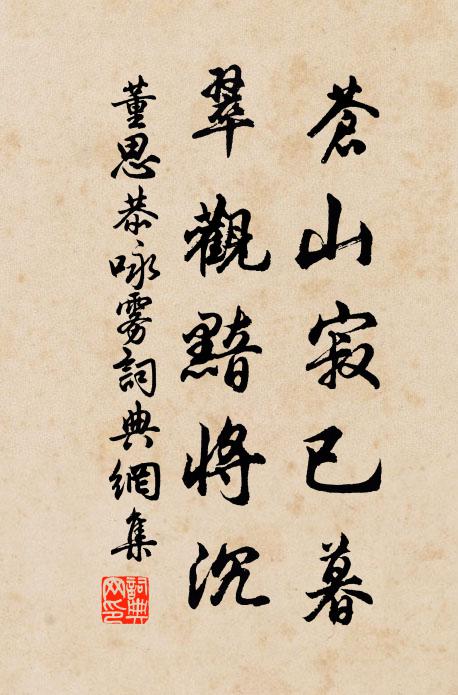 蒼山寂已暮
翠觀黯將沉
董思恭咏雾詞典網集
詞典网印